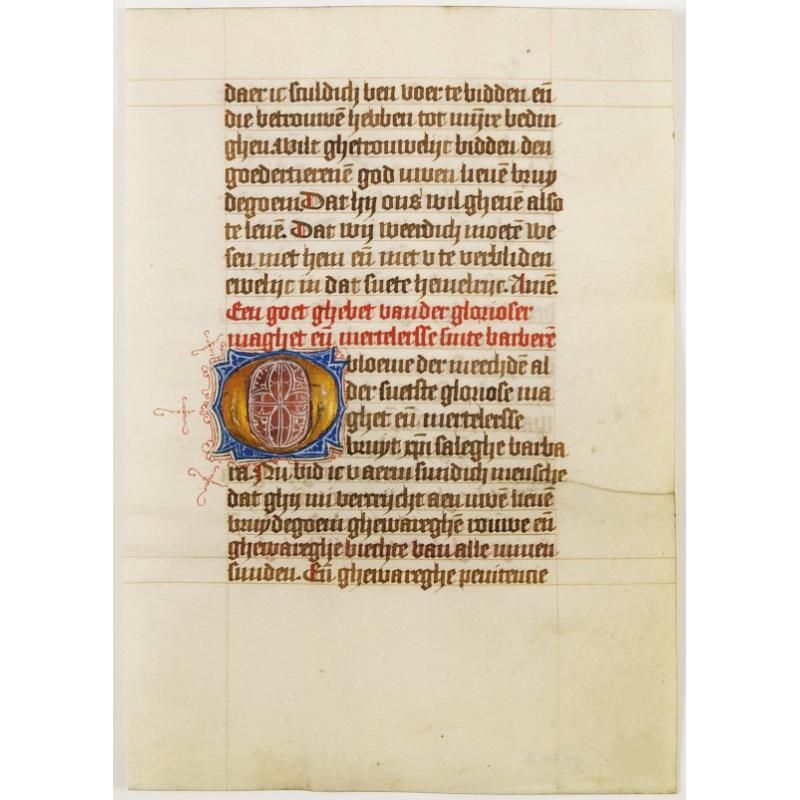 daer ic sculdich ben voer te bidden eñ
die betrouwē hebben tot mijre bedin
ghen. Wilt ghetrouwelijc bidden den
goedertierenē god uwen lieuē bruy
degoem. Dat hij ons wil gheuē also
te leuē. Dat wij weerdich moetē we
sen met hem eñ met v te verbliden
ewelijc in dat suete hemelrijc. Amē.
Een goet ghebet vander glorioser
maghet eñ mertelersse sinte barberē
O bloeme der meechdē al
der suetste gloriose ma
ghet eñ mertelersse
bruyt xp̄i saleghe barba
ra. Nu bid ic v aerm sundich mensche
dat ghij mi verrijcht aen uwē lieuē
bruydegoem ghewareghē rouwe eñ
ghewareghe biechte van alle minen
sunden. Eñ ghewareghe penitencie